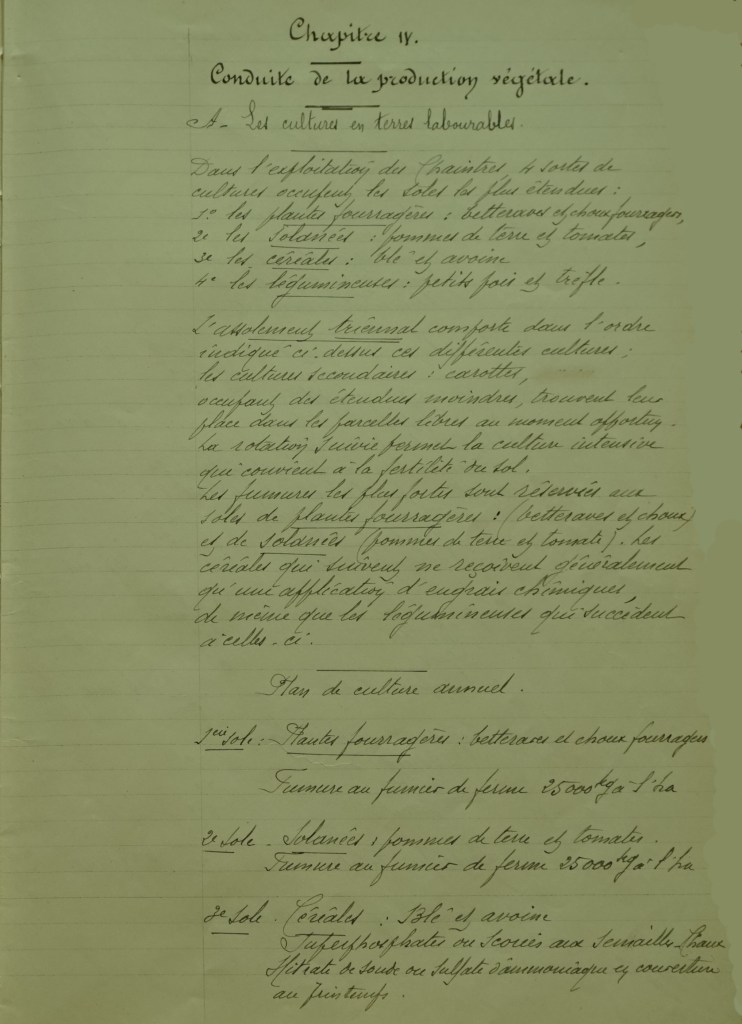 Chapitre IV.
Conduite de la production végétale.
A - Les cultures en terres labourables.
Dans l'exploitation des Chaintres, 4 sortes de
cultures occupent les soles les plus étendues :
1º les plantes fourragères : betteraves et choux fourragers,
2º les solanées : pommes de terre et tomates,
3º les céréales : blé et avoine
4º les légumineuses : petits pois et trèfle.
L'assolement triennal comporte dans l'ordre
indiqué ci-dessus ces différentes cultures ;
les cultures secondaires : carottes,
occupant des étendues moindres, trouvent leur
place dans les parcelles libres au moment opportun.
La rotation suivie permet la culture intensive
qui convient à la fertilité du sol.
Les fumures les plus fortes sont réservées aux
soles de plantes fourragères : (betteraves et choux)
et de solanées (pommes de terre et tomate). Les
céréales qui suivent ne reçoivent généralement
qu'une application d'engrais chimiques,
de même que les légumineuses qui succèdent
à celles-ci.
Plan de culture annuel.
1ère sole : Plantes fourragères : betteraves et choux fourragers
Fumure au fumier de ferme 25000 kg à l'ha
2e sole - Solanées : pommes de terre et tomates.
Fumure au fumier de ferme 25000 kg à l'ha
3e sole - Céréales : Blé et avoine
Superphosphates ou Scories aux Semailles - Chaux
Nitrate de soude ou Sulfate d'ammoniaque en couverture
au printemps.